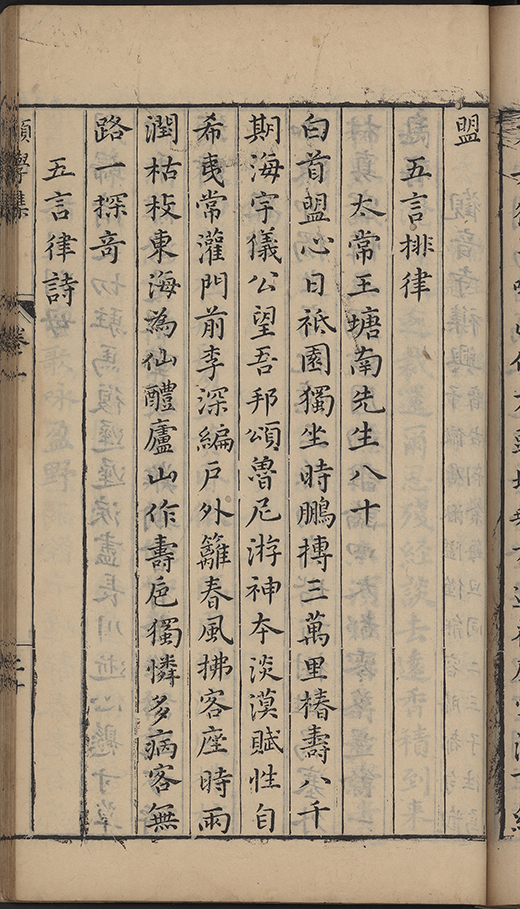 盟
五言排律
太常王塘南先生八十
白首盟心日祇園獨坐時鵬摶三萬里椿壽八千
期海宇儀公望吾邦頌魯尼游神本淡漠賦性自
希夷常灌門前李深編戶外籬春風拂客座時雨
潤枯枝東海為仙醴廬山作壽巵獨憐多病客無
路一探奇
五言律詩
學集
卷一